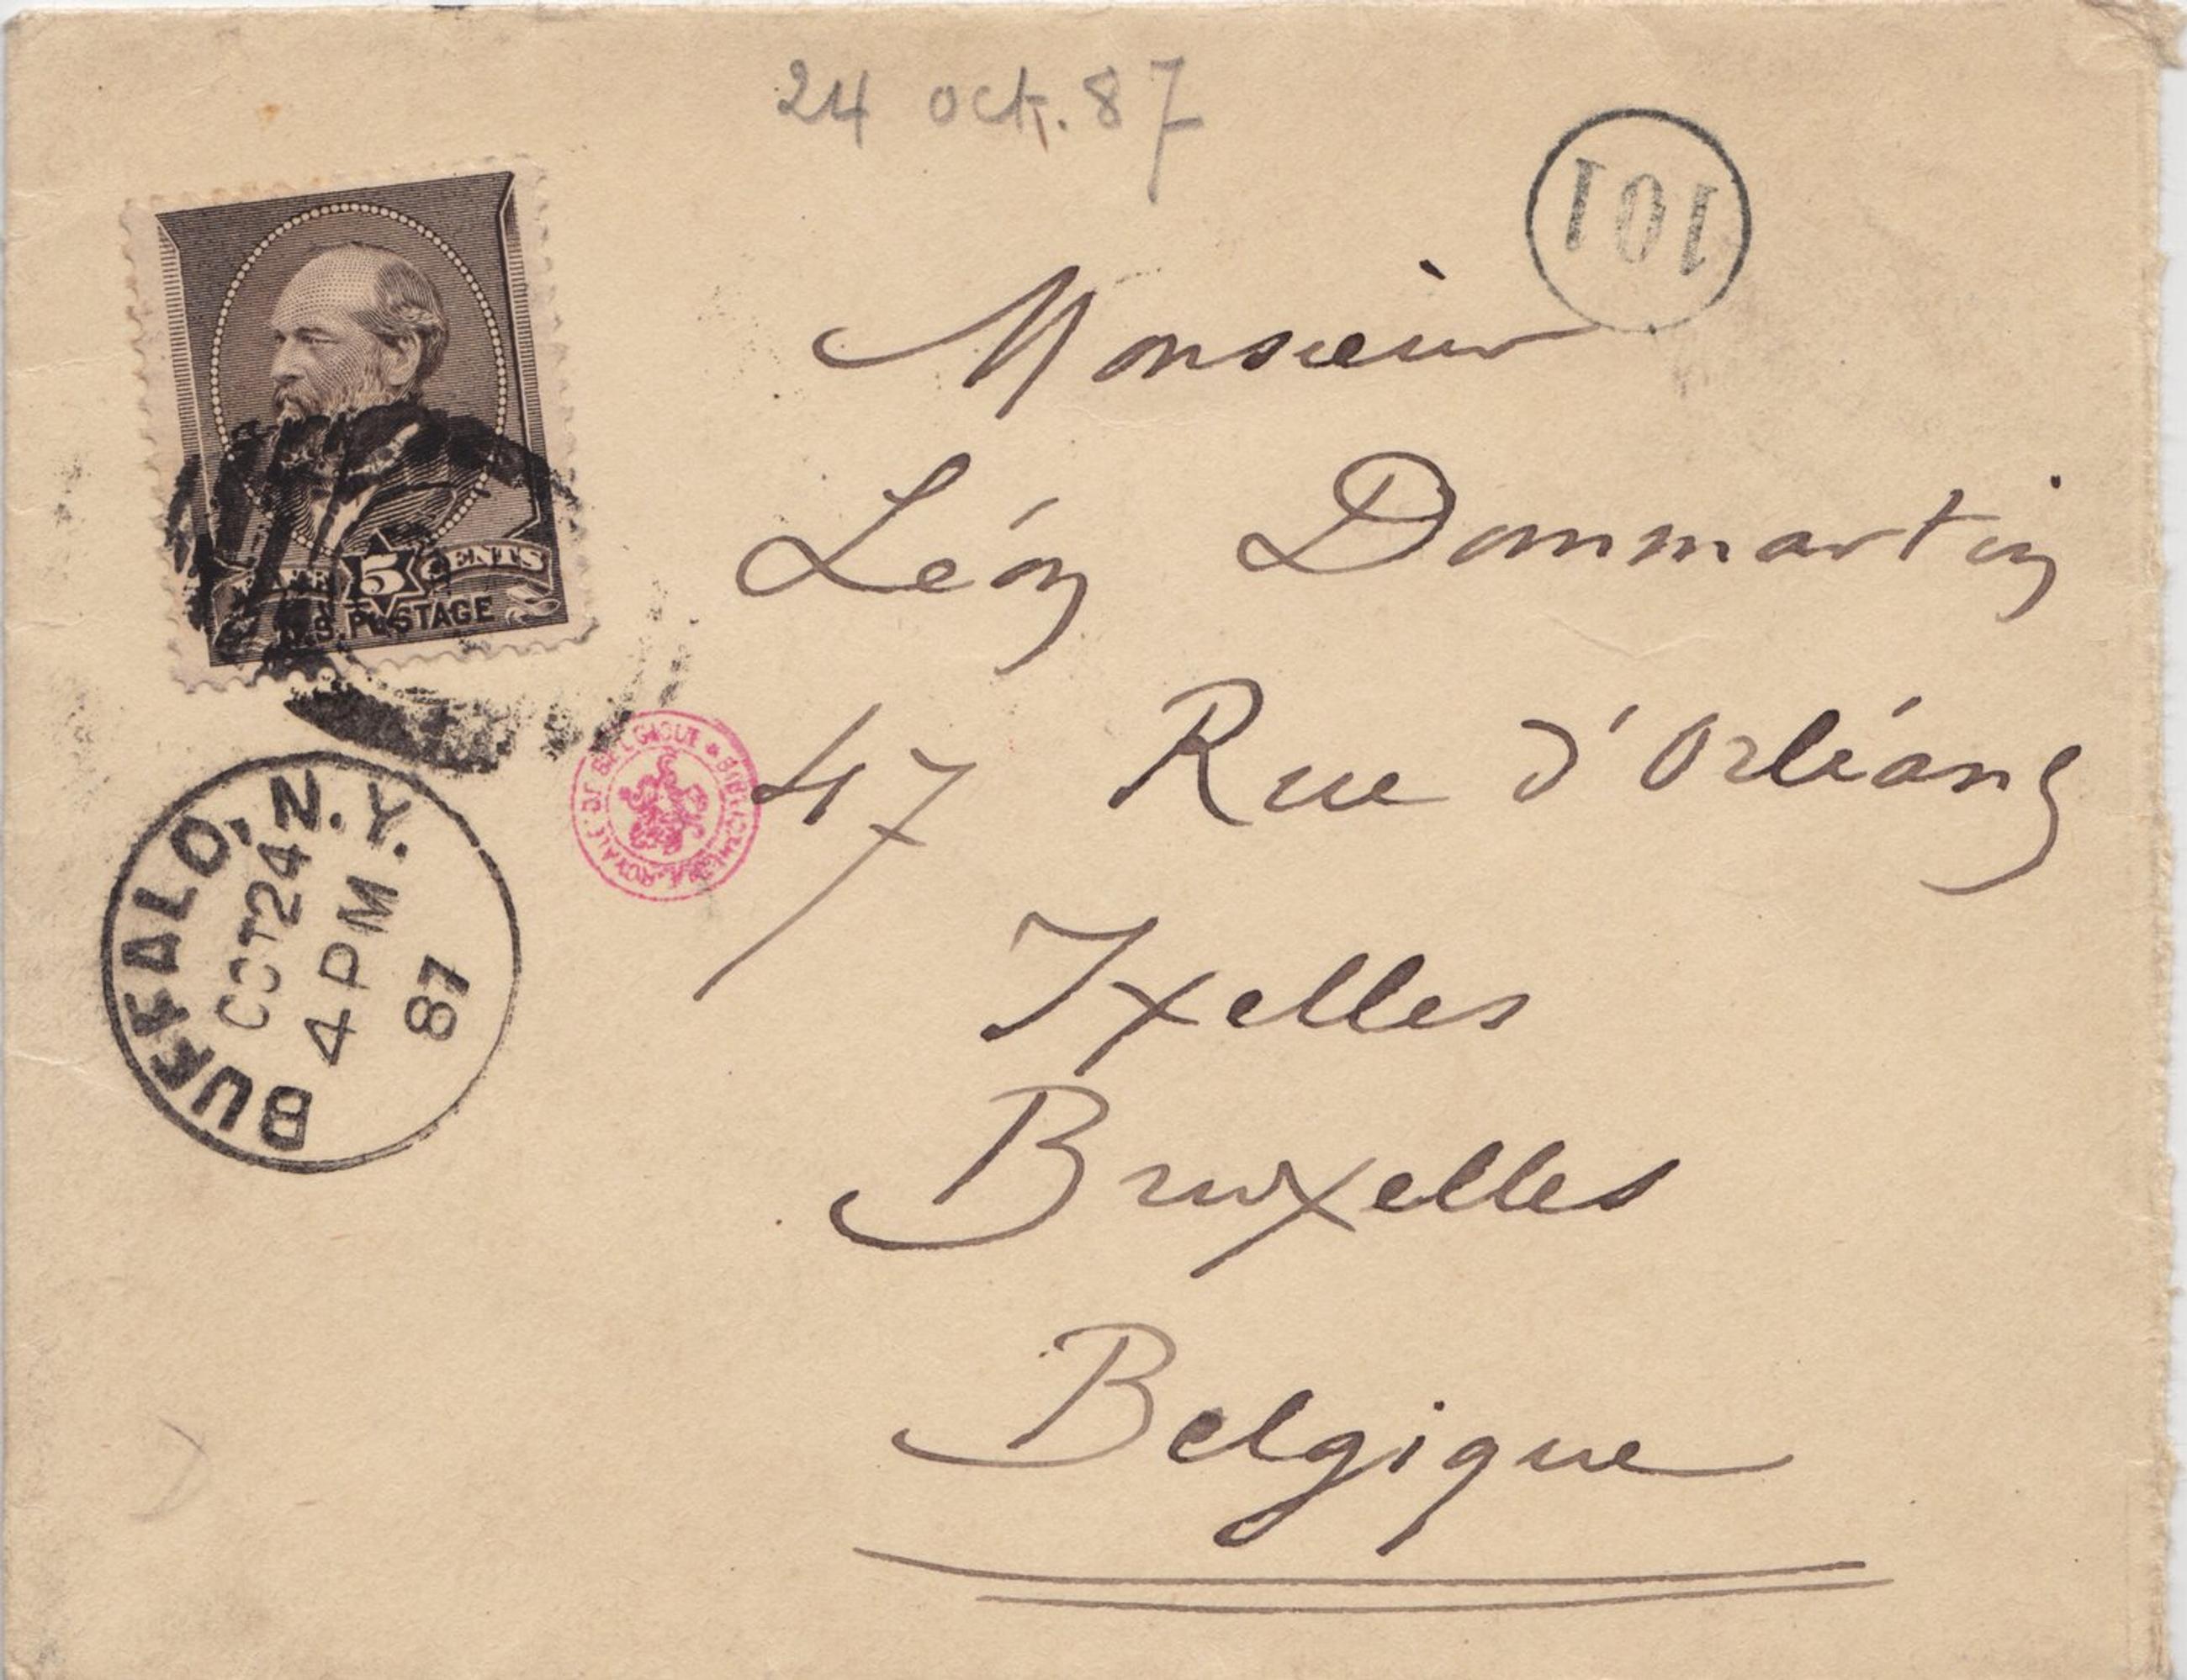 24 oct. 87
101
Monsieur
Léon Dommartin
47 Rue d'Orléans
Ixelles
Bruxelles
Belgique
5 CENTS
U.S. POSTAGE
BUFFALO, N.Y.
OCT 24
4 PM
87
BIBLIOTHEQUE ROYALE DE BELGIQUE